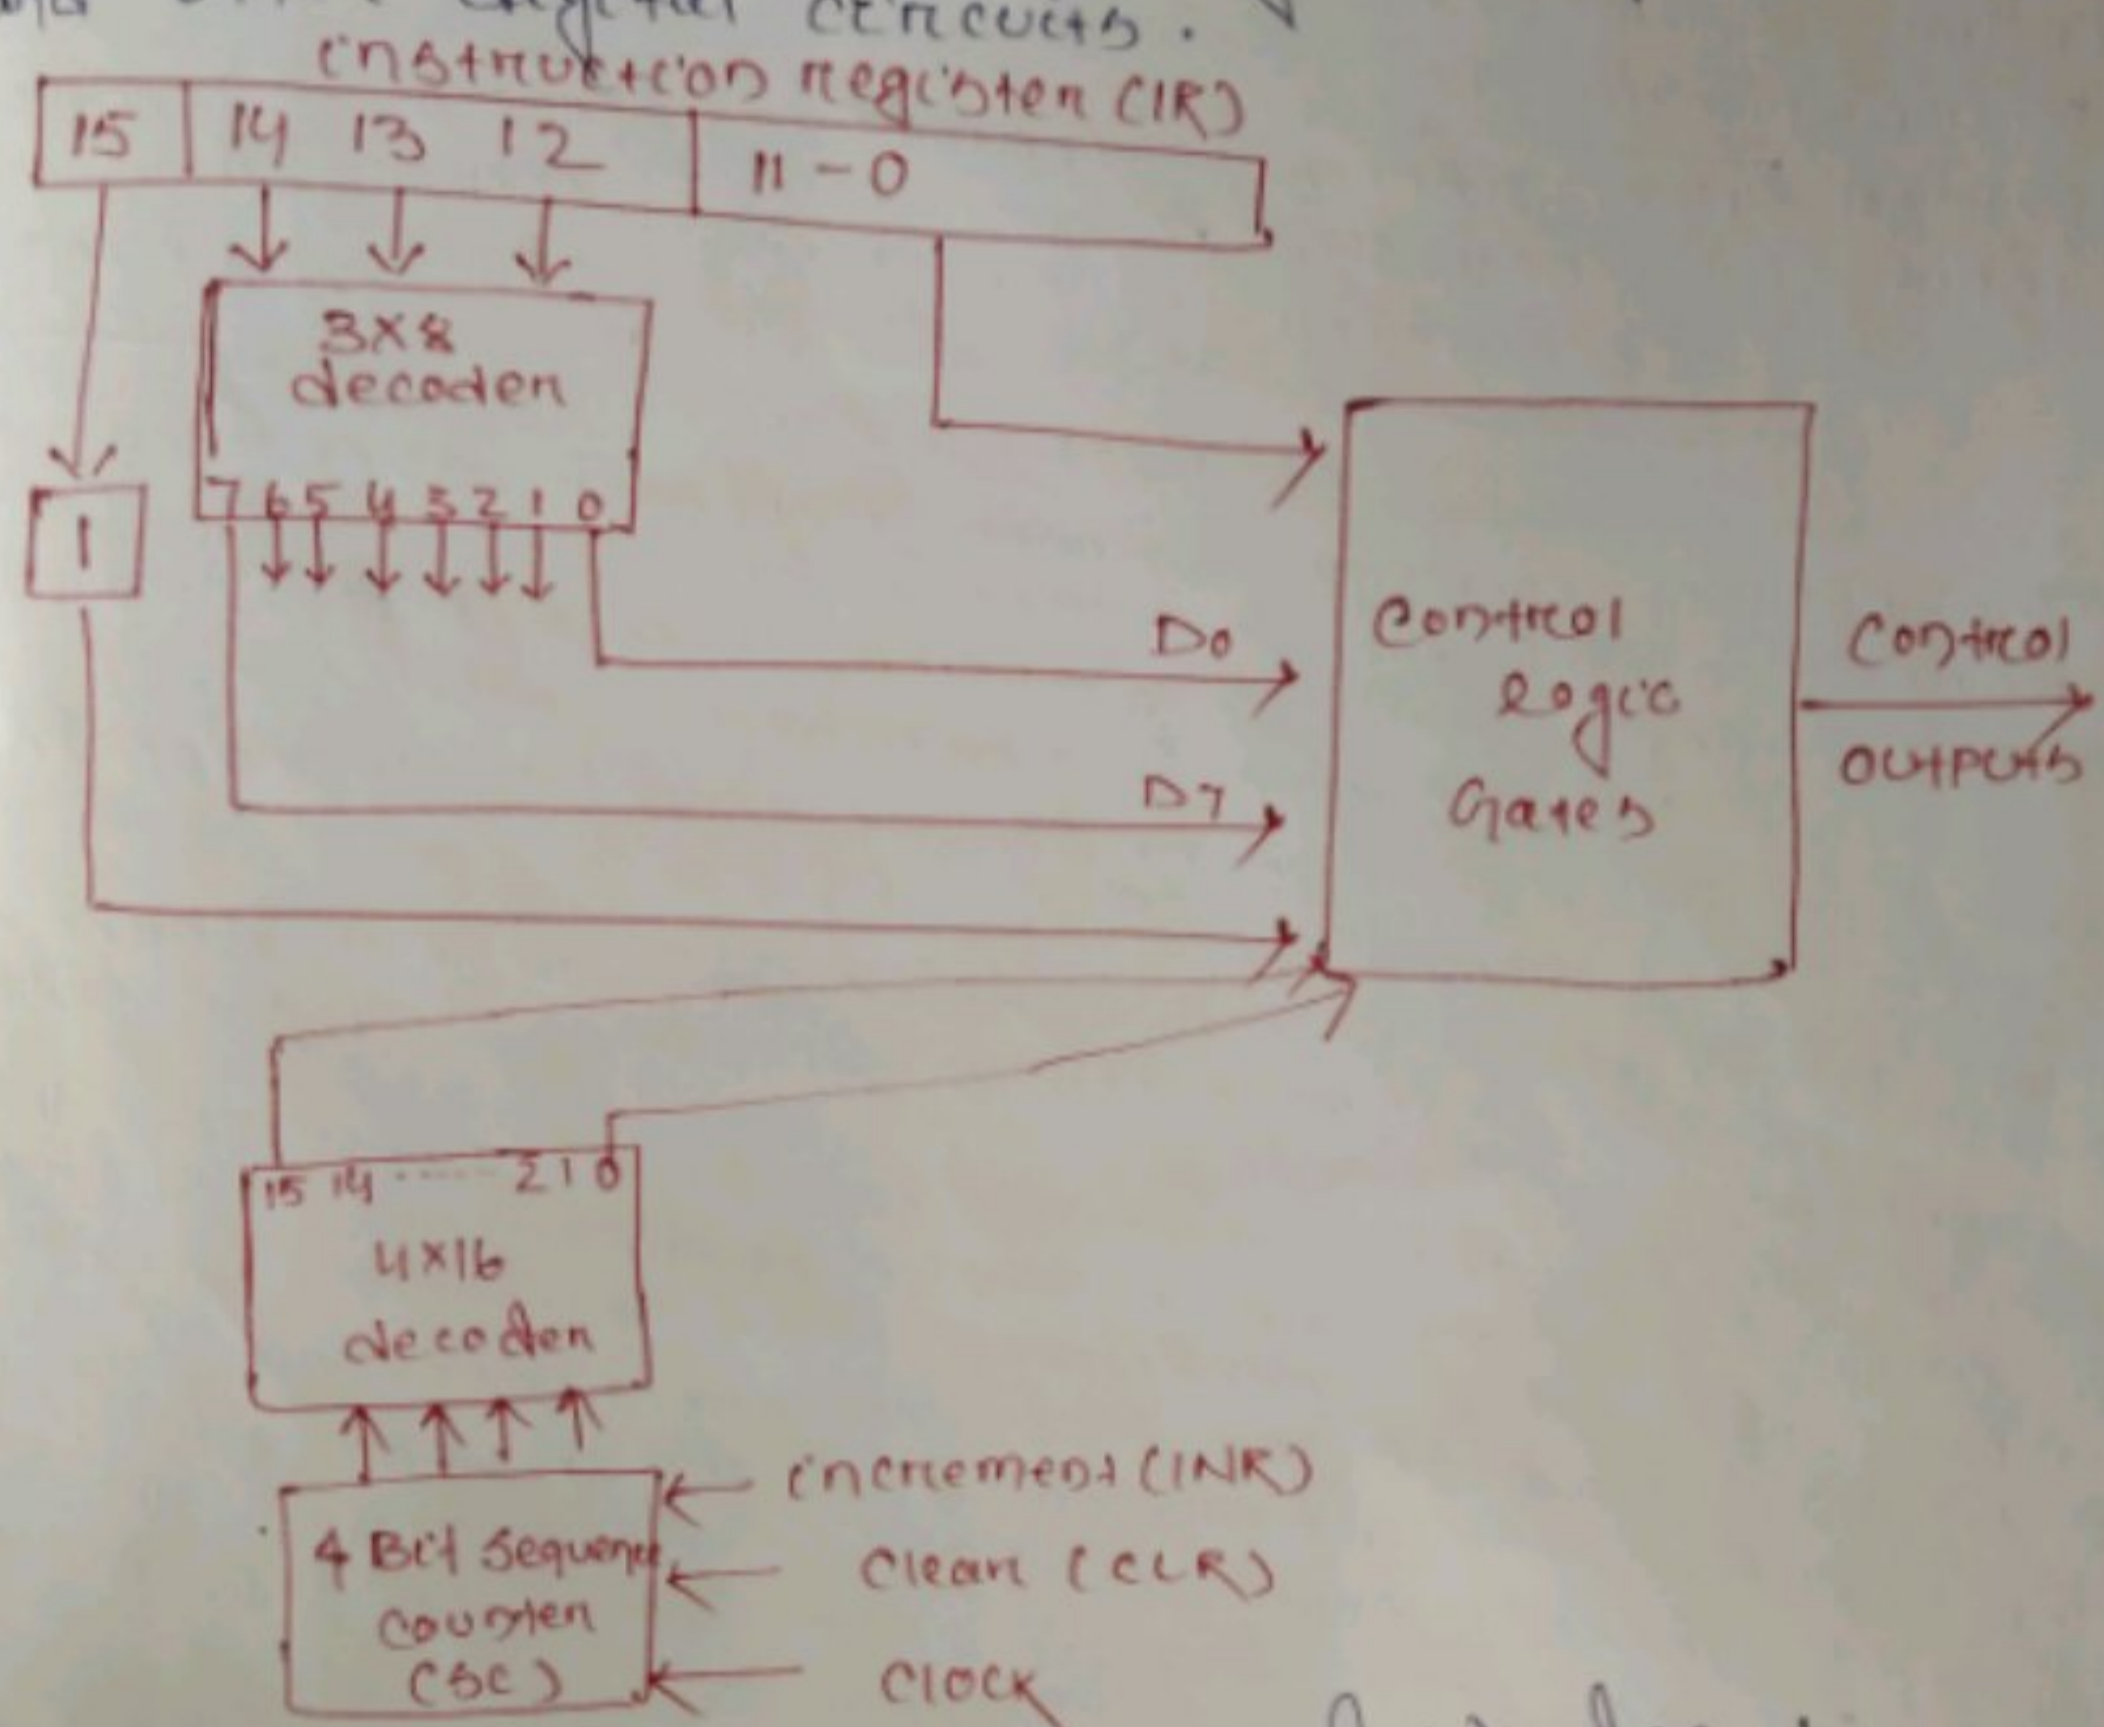 digital circuits.
instruction register (IR)
15 14 13 12 11-0
3x8
decoder
7 6 5 4 3 2 1 0
1
D0
D7
Control
logic
Gates
Control
outputs
15 14 ...... 2 1 0
4x16
decoder
4 Bit sequence
counter
(SC)
increment (INR)
Clear (CLR)
Clock